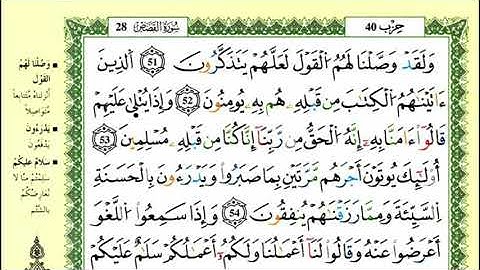 حِزْب 40
سُورَةُ القَصَصِ 28
وَلَقَدْ وَصَّلْنَا لَهُمُ الْقَوْلَ لَعَلَّهُمْ يَتَذَكَّرُونَ 51 الَّذِينَ
ءَاتَيْنَٰهُمُ الْكِتَٰبَ مِن قَبْلِهِۦ هُم بِهِۦ يُومِنُونَ 52 وَإِذَا يُتْلَىٰ عَلَيْهِمْ
قَالُوٓاْ ءَامَنَّا بِهِۦٓ إِنَّهُ الْحَقُّ مِن رَّبِّنَآ إِنَّا كُنَّا مِن قَبْلِهِۦ مُسْلِمِينَ 53
أُوْلَٰٓئِكَ يُوتَوْنَ أَجْرَهُم مَّرَّتَيْنِ بِمَا صَبَرُواْ وَيَدْرَءُونَ بِالْحَسَنَةِ
السَّيِّئَةَ وَمِمَّا رَزَقْنَٰهُمْ يُنفِقُونَ 54 وَإِذَا سَمِعُواْ اللَّغْوَ
أَعْرَضُواْ عَنْهُ وَقَالُواْ لَنَآ أَعْمَٰلُنَا وَلَكُمُۥٓ أَعْمَٰلُكُمْ سَلَٰمٌ عَلَيْكُمْ
وَصَّلْنَا لَهُمُ
الْقَوْلَ
أَنْزَلْنَاهُ مُتَتَابِعًا
مُتَوَاصِلًا
يَدْرَءُونَ
يَدْفَعُونَ
سَلَامٌ عَلَيْكُمْ
سَلِمْتُمْ مِنَّا لَا
نُعَارِضُكُمْ
بِالشَّتْمِ